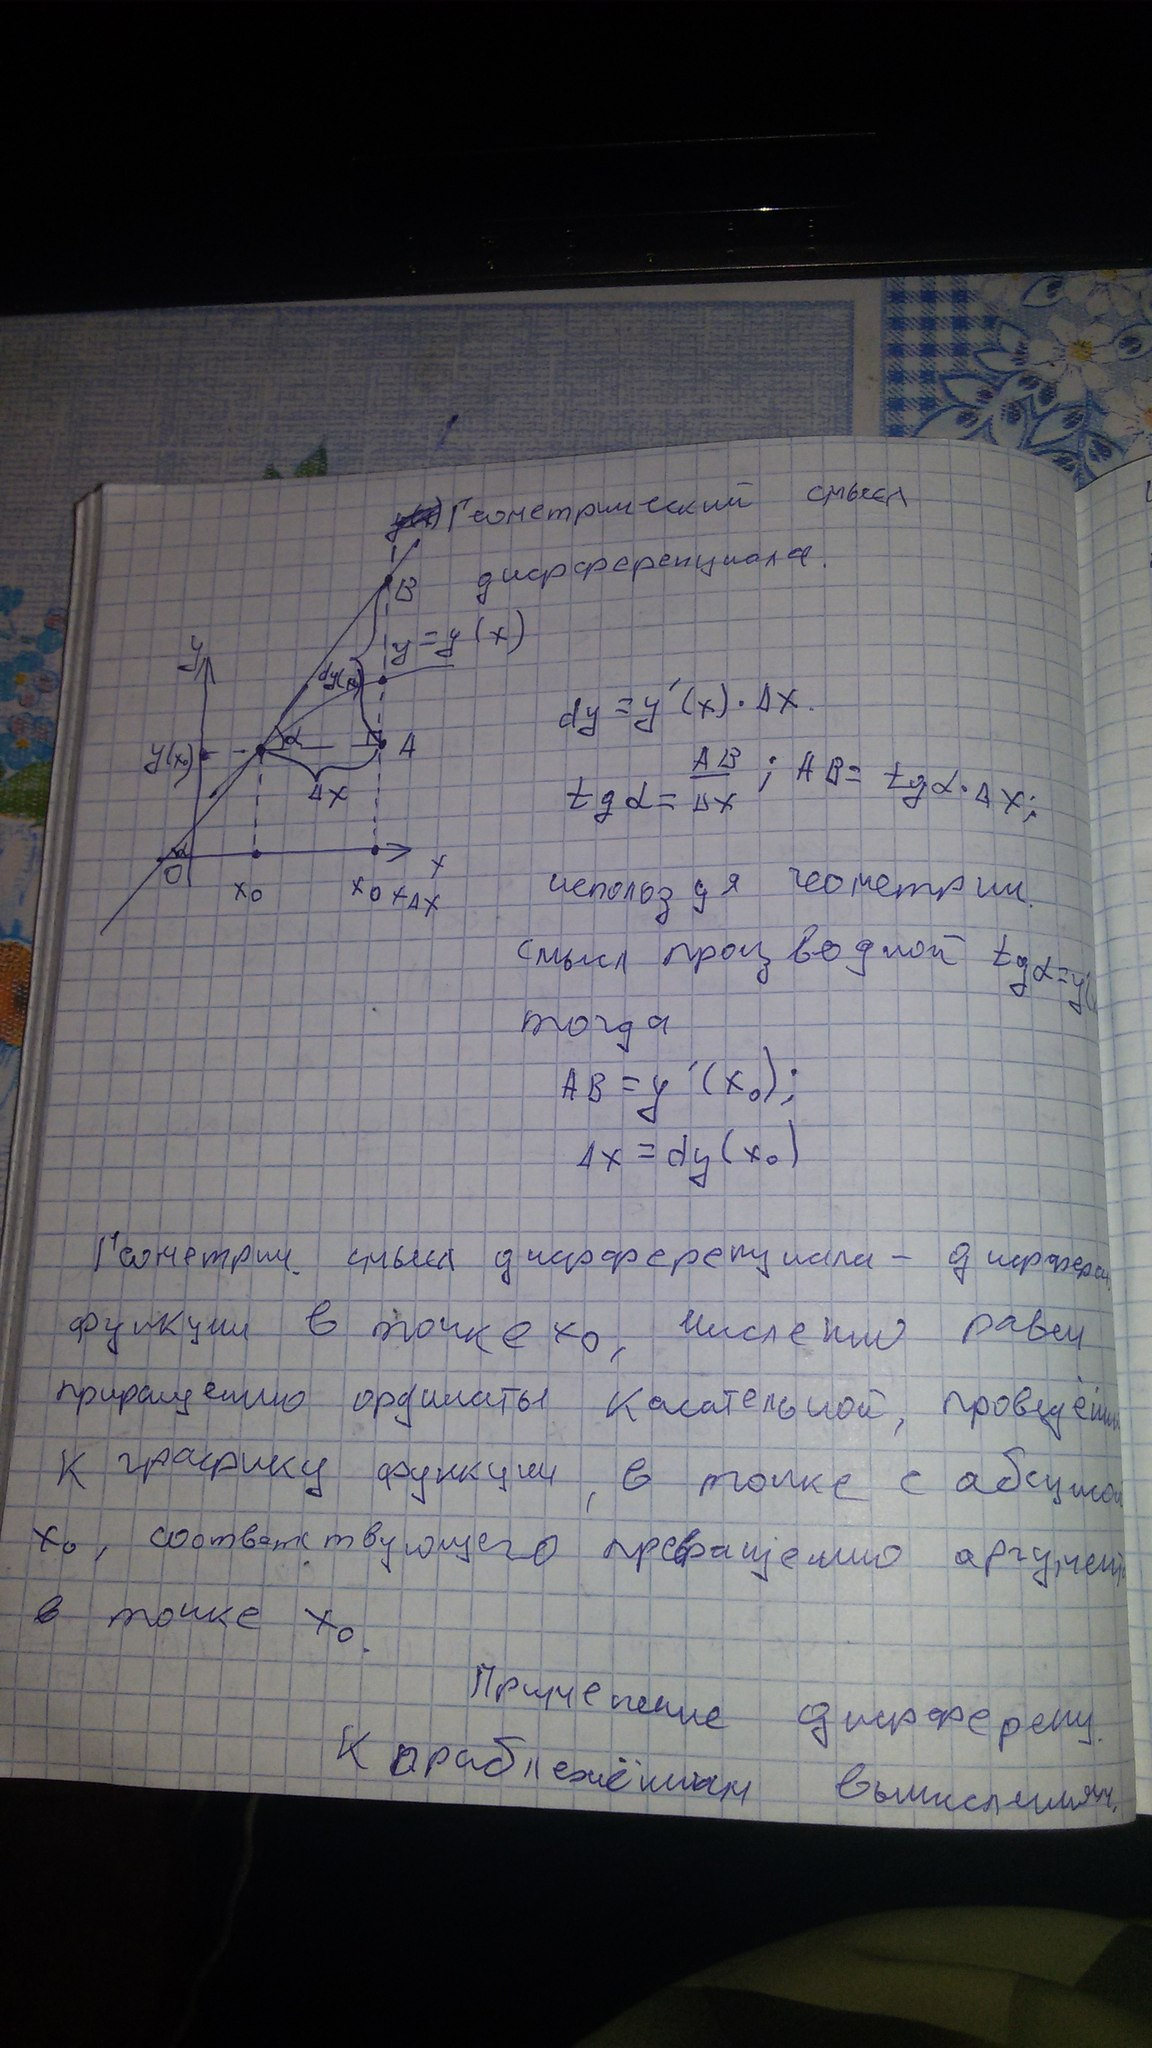 Геометрический смысл
дифференциала.
B
y = y(x)
y
dy(x₀)
α
A
y(x₀)
Δx
α
O
x
x₀
x₀ + Δx
dy = y′(x) · Δx.
tgα = AB/Δx ; AB = tgα · Δx;
используя геометрич.
смысл производной tgα = y′(
тогда
AB = y′(x₀);
Δx = dy(x₀)
Геометрич. смысл дифференциала – дифферен.
функции в точке x₀, численно равен
приращению ординаты касательной, проведённ
к графику функции, в точке с абсциссой
x₀, соответствующего превращению аргумента
в точке x₀.
Применение дифференц.
К приближённым вычислениям.